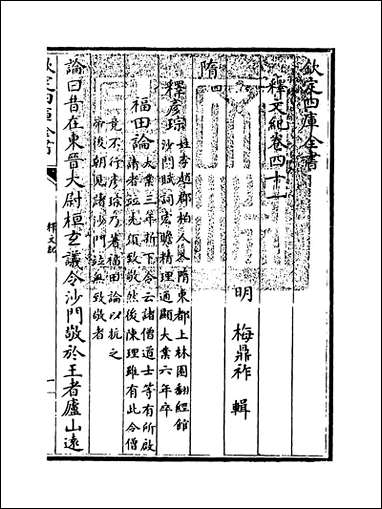 欽定四庫全書
釋文紀卷四十一
明 梅鼎祚 輯
隋四
釋彥琮 姓李趙郡柏人隋東都上林園翻經館
沙門賦詞宏贍精理通顯大業六年卒
福田論 大業三年新下令云諸僧道士等有所啟
請者並先須致敬然後陳理雖有此令僧
竟不行彥琮乃著福田論以抗之
帝後朝見諸沙門並無致敬者
論曰昔在東晉大尉桓玄議令沙門敬於王者廬山遠
欽定四庫全書
釋文紀
一